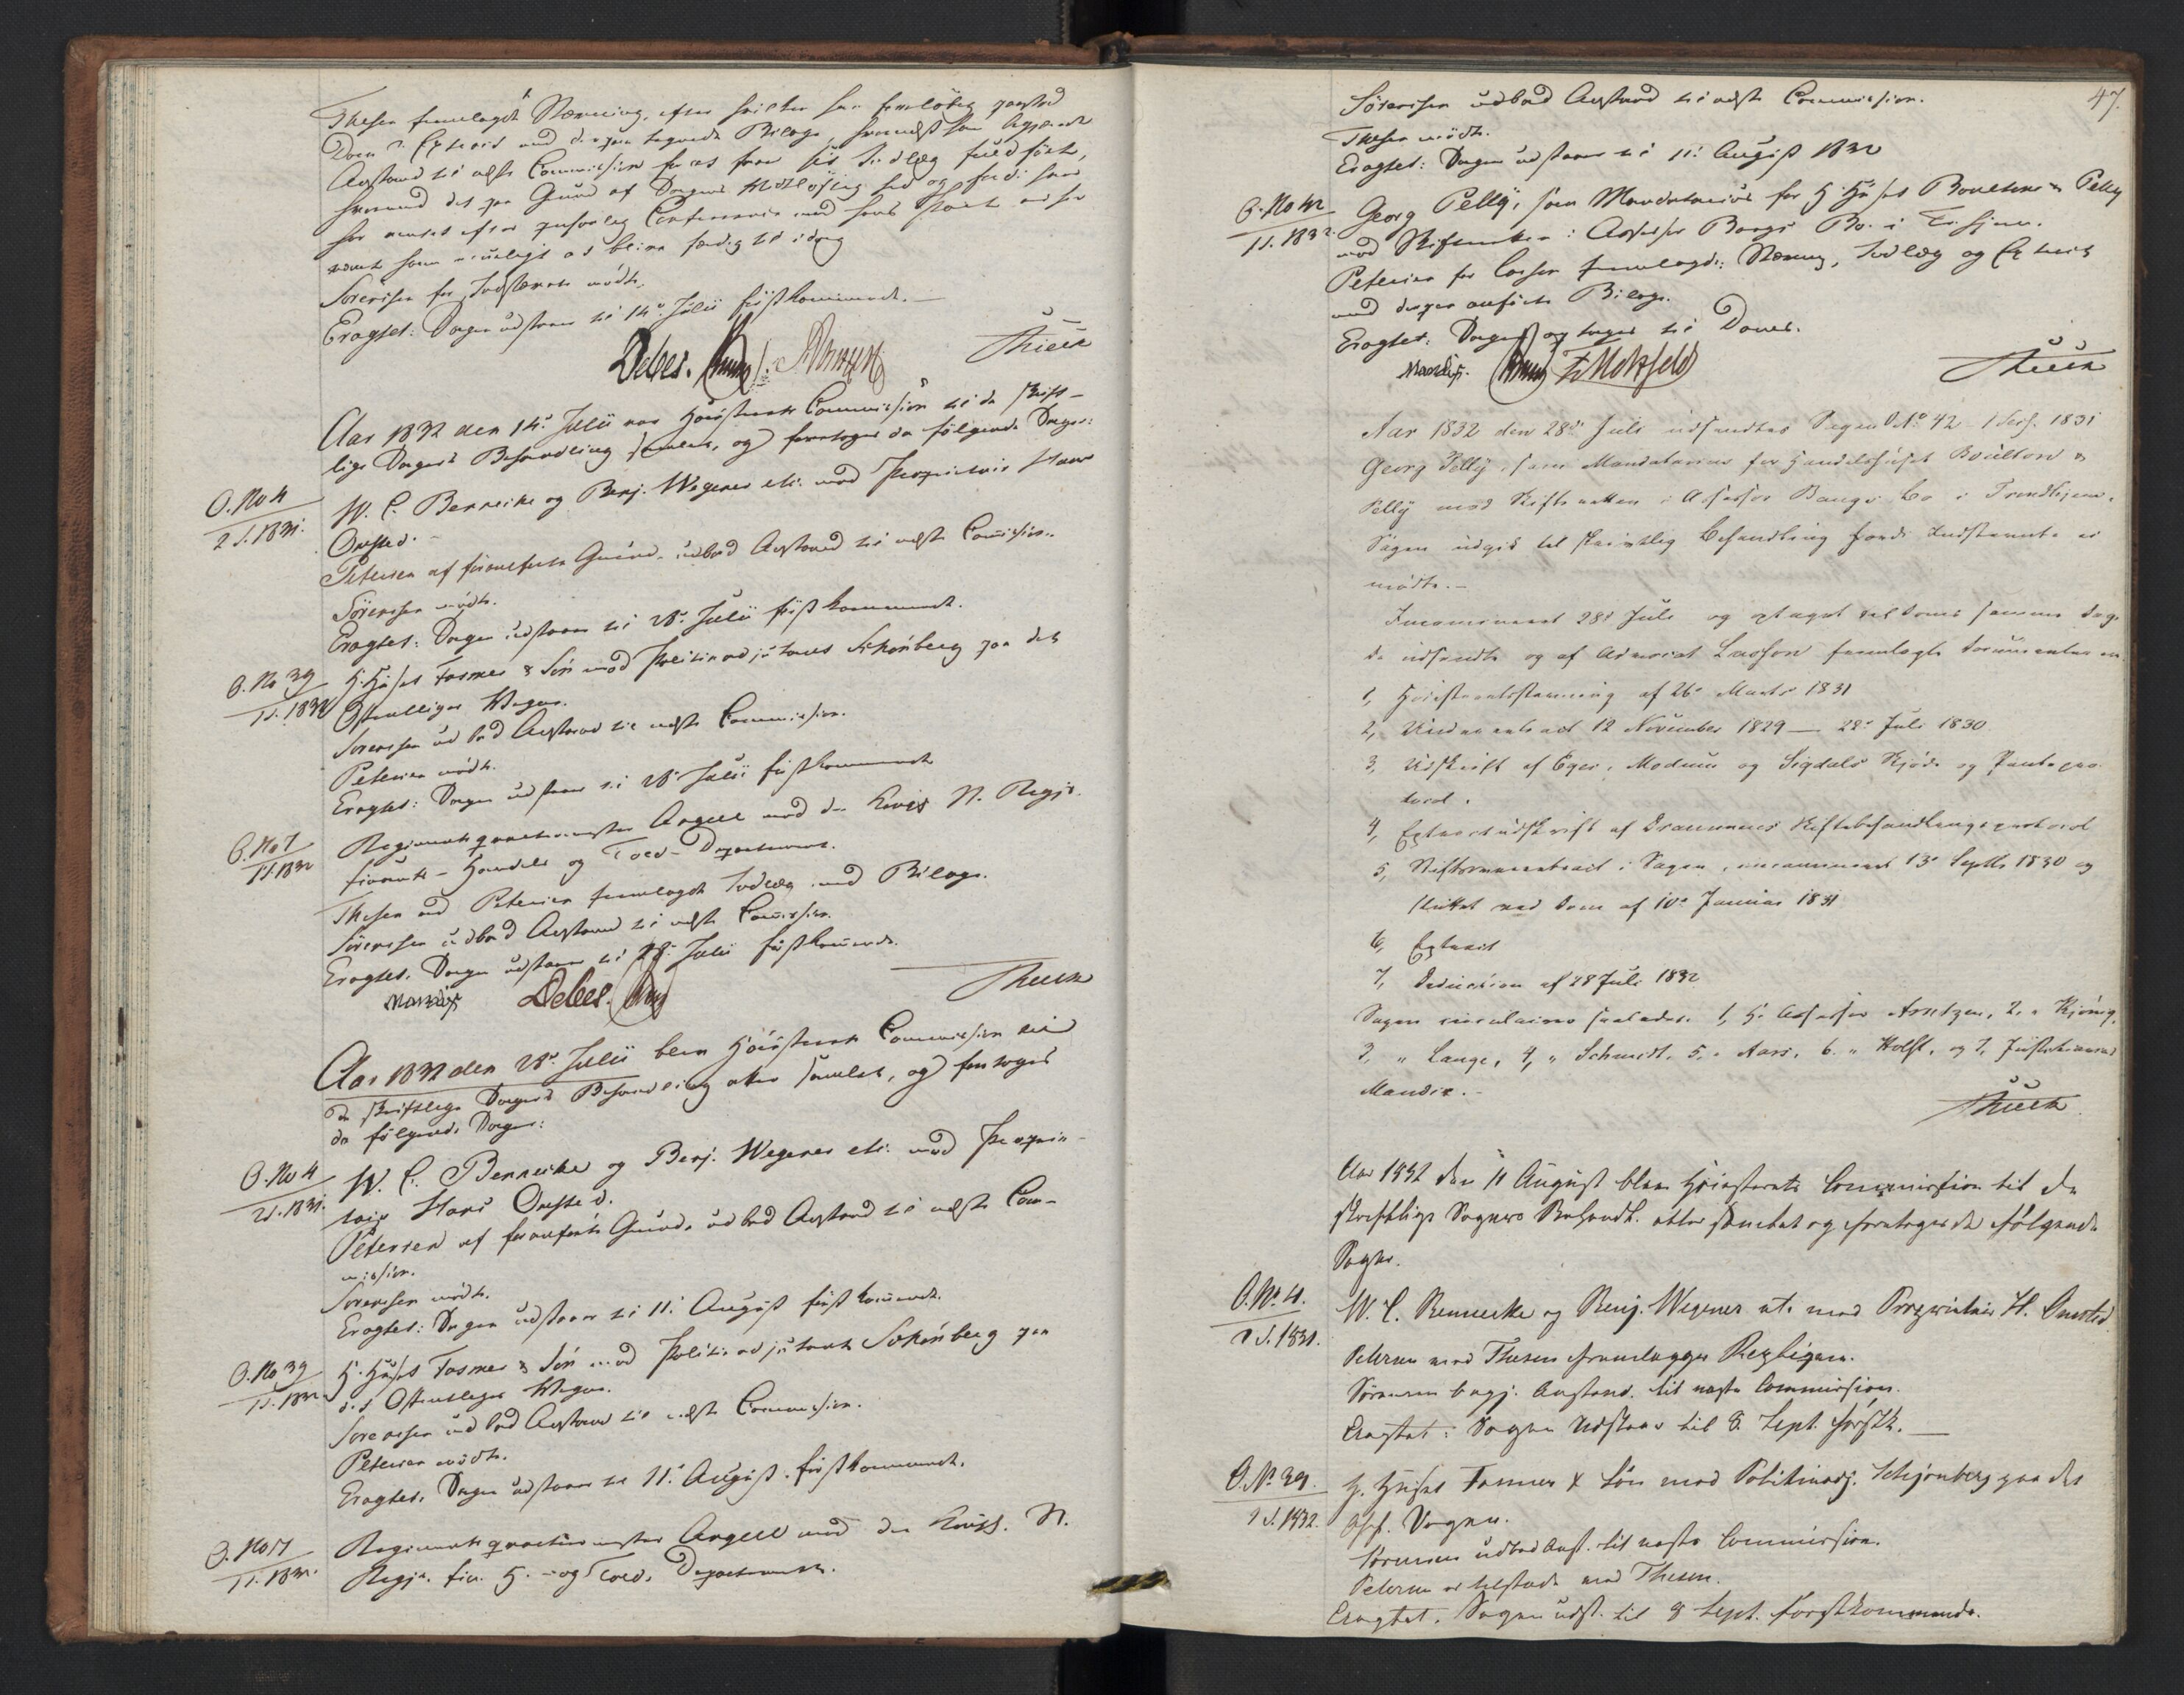 Thesen fremlagde Stævning, efter hvilken han foreløbig
Doc. & Extract med derpaa tegnede Bilage, hvornæst han
Anstand til næste Commission for at faae sit Indlæg fuldført,
hvormed det paa Grund af Sagens Vidtløftighed og fordi han
har ventet efter Conference med
været ham umuligt at blive færdig til idag
Sørensen for Indstævnte mødte.
Eragtet: Sagen udstaaer til 14de Julii førstkommende. —
Debes.
Thiech
Aar 1832 den 14de Julii var Høiesterets Commission til de skrift-
lige Sagers Behandling samlet, og foretoges da følgende Sager:
O. No 4
2 S. 1831.
W. C. Bennecke og Benj. Wegener etc. mod Proprietair Hans
Onsted. –
Petersen af foranførte Grund udbad Anstand til næste Comission.
Sørensen mødte.
Eragtet: Sagen udstaaer til 28de Julii førstkommende.
O. No 39
1 S. 1832
H. Huset Fasmer & Søn mod Politieadjutant Schønberg paa det
Offentliges Vegne.
Sørensen udbad Anstand til næste Commission.
Petersen mødte.
Eragtet: Sagen udstaaer til 28de Julii førstkommende
O. No 7
1 S. 1832
Regimentsqvarteermester Angell mod den Kongl. N. Regjs.
Finants- Handels og Told- Departement.
Thesen ved Petersen fremlagde Indlæg med Bilage.
Sørensen udbad Anstand til næste Comission.
Eragtet: Sagen udstaaer til 28de Julii førstkommende.
Mandix Debes.
Thiech
Aar 1832 den 28de Julii blev Høiesterets Commission til
de skriftlige Sagers Behandling atter samlet, og foretoges
da følgende Sager:
O. No 4
2 S. 1831.
W. C. Bennecke og Benj. Wegener etc. mod Proprie-
tair Hans Onsted.
Petersen af foranførte Grunde udbad Anstand til næste Com-
mission.
Sørensen mødte.
Eragtet: Sagen udstaaer til 11te August førstkommende.
O. No 39
1 S. 1832
H. Huset Fasmer & Søn mod Politieadjutant Schønberg paa
det Offentliges Vegne.
Sørensen udbad Anstand til næste Commission.
Petersen mødte.
Eragtet: Sagen udstaaer til 11te August førstkommende.
O. No 7
1 S. 1832.
Regimentsqvarteermester Angell mod den Kongl. N.
Regjs. Fin. H. - og Told. Departement.
47.
Sørensen udbad Anstand til næste Commission.
Thesen mødte.
Eragtet: Sagen udstaaer til 11te August 1832
O. No 42
1 S. 1832.
Georg Pelly, som Mandatarius for H. Huset Boulton & Pelly
mod Skifteretten i Assessor Bangs Bo i Trhjem.
Petersen for Lasson fremlagde: Stævning, Indlæg og Extract
med derpaa anførte Bilage.
Eragtet: Sagen optages til Doms.
Mandix. Motzfeldt
Thiech
Aar 1832 den 28de Juli udsendtes Sagen O. No 42 1 Sess. 1831
Georg Pelly, som Mandatarius for Handelshuset Boulton &
Pelly mod Skifteretten i Assessor Bangs Bo i Trondhjem.
Sagen udgik til skriftlig Behandling fordi Indstævnte ei
mødte. –
Incamineret 28de Juli og optaget til Doms samme Dag.
De udsendte og af Advocat Lasson fremlagte Documenter ere
1, Høiesteretsstævning af 26de Marts 1831
2, Underretsact 12 November 1829 — 22de Juli 1830.
3, Udskrift af Eger, Modum og Sigdals Skjøde og Pantepro-
tocol.
4, Extractudskrift af Drammens Skiftebehandlingsprotocol
5, Stiftsoverretsact i Sagen, incamineret 13de Septbr 1830 og
sluttet ved Dom af 10de Januar 1831
6, Extract
7, Deduction af 28 Juli 1832
Sagen circulerer saaledes: 1, Hr Assessor Arntzen, 2, " Kjønig,
3, " Lange, 4, " Schmidt, 5, " Aars, 6. " Holst, og 7, Justitiarius
Mandix. –
Thiech
Aar 1832 den 11 August blev Høiesterets Commission til de
skriftlige Sagers Behandl. atter samlet og foretoges da følgende
Sager.
O. No 4.
2 S. 1831.
W. C. Bennecke og Benj. Wegener etc. mod Proprietair H. Onsted.
Petersen ved Thesen fremlægger Repliquen.
Sørensen begj. Anstand til næste Commission.
Eragtet: Sagen udstaaer til 8. Sept. førstk. —
O. No 39.
1 S. 1832.
H. Huset Fasmer & Søn mod Politieadj. Schjønberg paa det
Off. Vegne.
Sørensen udbad Anst. til næste Commission.
Petersen er tilstede ved Thesen.
Eragtet. Sagen udst. til 8 Sept. førstkommende.